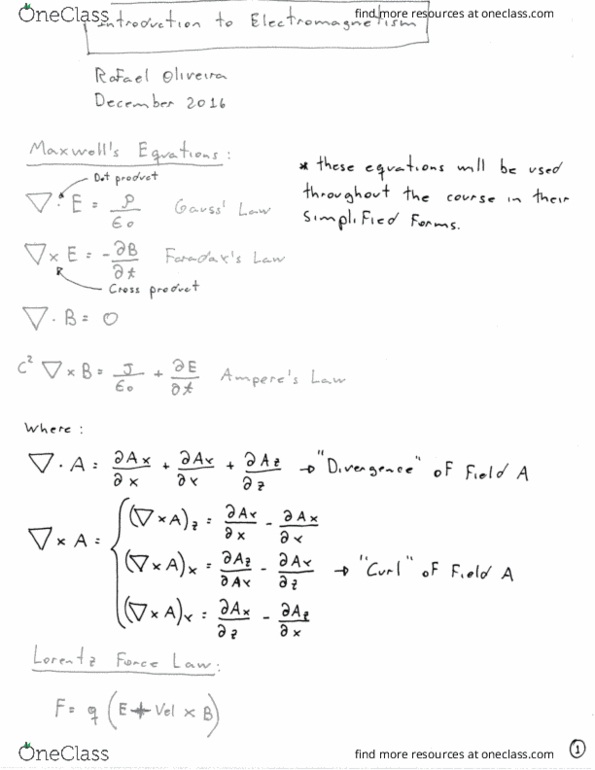 OneClass find more resources at oneclass.com
Introduction to Electromagnetism
Rafael Oliveira
December 2016
Maxwell's Equations:
* these equations will be used
throughout the course in their
simplified forms.
Dot product
∇ · E = ρ/εo Gauss' Law
∇ × E = -∂B/∂t Faraday's Law
Cross product
∇ · B = 0
C² ∇ × B = J/εo + ∂E/∂t Ampere's Law
Where:
∇ · A = ∂Ax/∂x + ∂Ay/∂y + ∂Az/∂z → "Divergence" of Field A
(∇ × A)z = ∂Ay/∂x - ∂Ax/∂y
∇ × A = { (∇ × A)x = ∂Az/∂Ay - ∂Ay/∂z → "Curl" of Field A
(∇ × A)y = ∂Ax/∂z - ∂Az/∂x
Lorentz Force Law:
F = q (E + Vel × B)
OneClass find more resources at oneclass.com 1